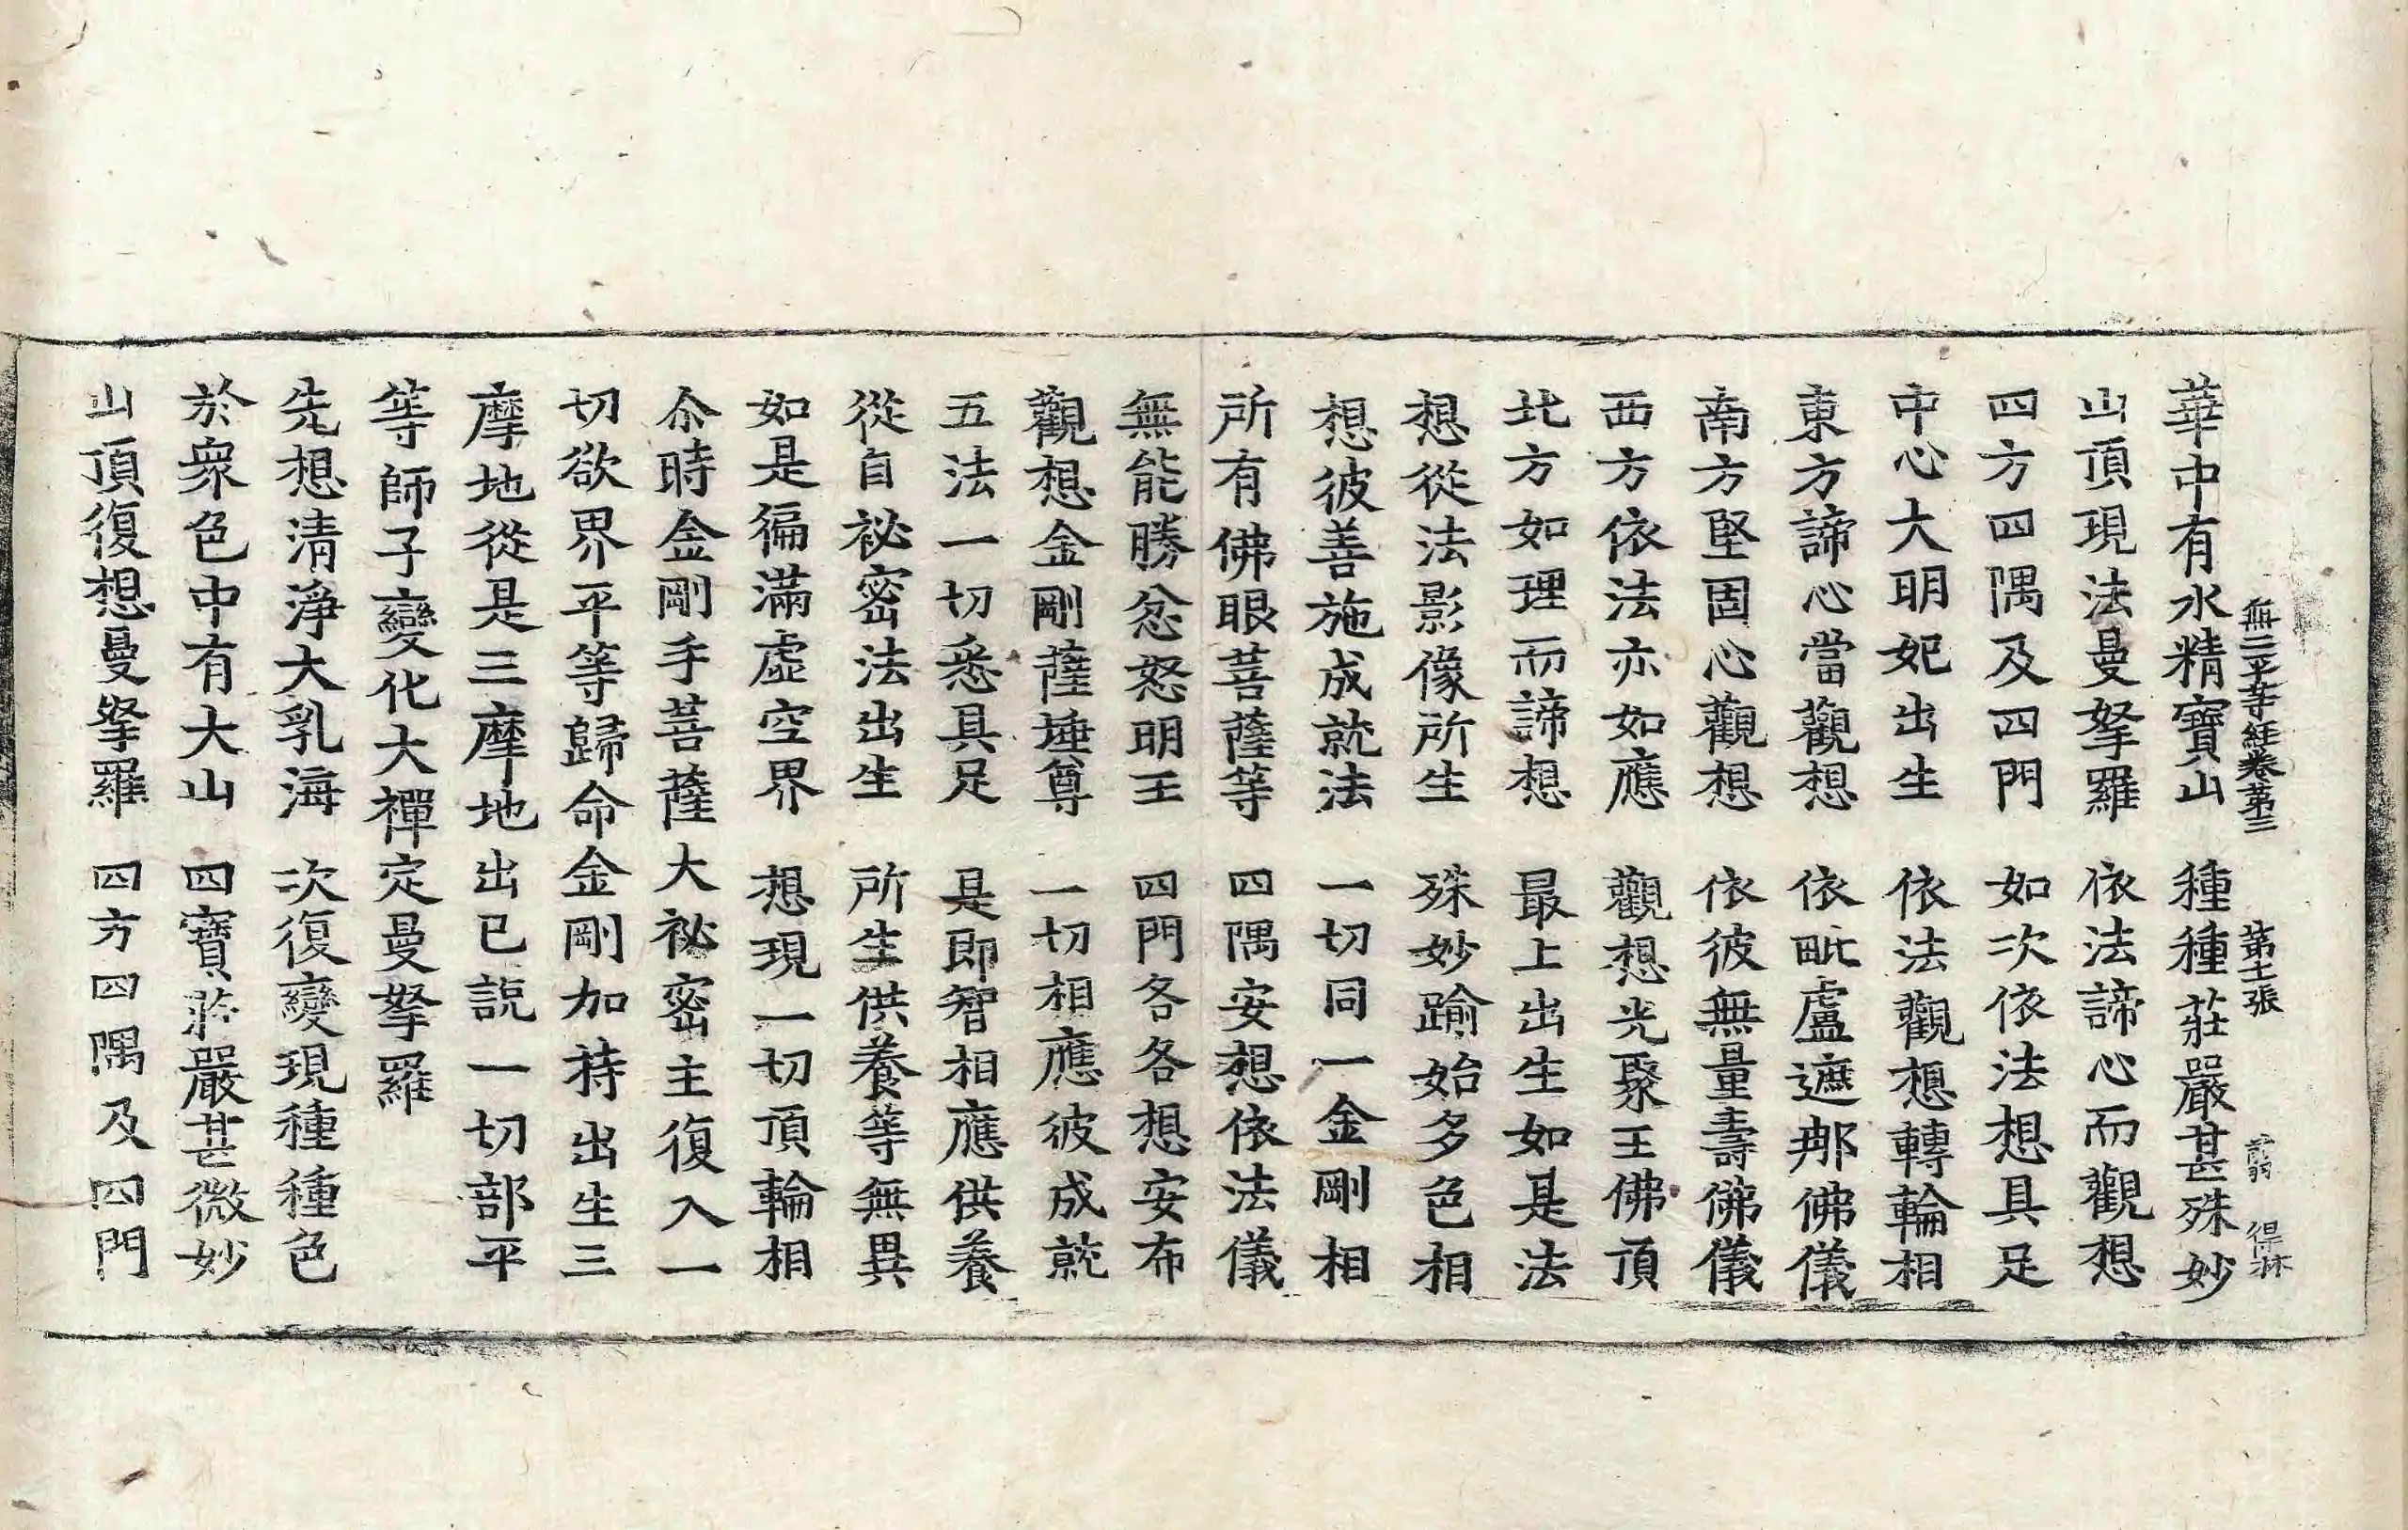 無二平等經卷第三　第十二張　翦　得林
華中有水精寶山　種種莊嚴甚殊妙
山頂現法曼拏羅　依法諦心而觀想
四方四隅及四門　如次依法想具足
中心大明妃出生　依法觀想轉輪相
東方諦心當觀想　依毗盧遮那佛儀
南方堅固心觀想　依彼無量壽佛儀
西方依法亦如應　觀想光聚王佛頂
北方如理而諦想　最上出生如是法
想從法影像所生　殊妙踰始多色相
想彼善施成就法　一切同一金剛相
所有佛眼菩薩等　四隅安想依法儀
無能勝忿怒明王　四門各各想安布
觀想金剛薩埵尊　一切相應彼成就
五法一切悉具足　是即智相應供養
從自祕密法出生　所生供養等無異
如是徧滿虛空界　想現一切頂輪相
尒時金剛手菩薩大祕密主復入一
切欲界平等歸命金剛加持出生三
摩地從是三摩地出已說一切部平
等師子變化大禪定曼拏羅
先想清淨大乳海　次復變現種種色
於衆色中有大山　四寶莊嚴甚微妙
山頂復想曼拏羅　四方四隅及四門